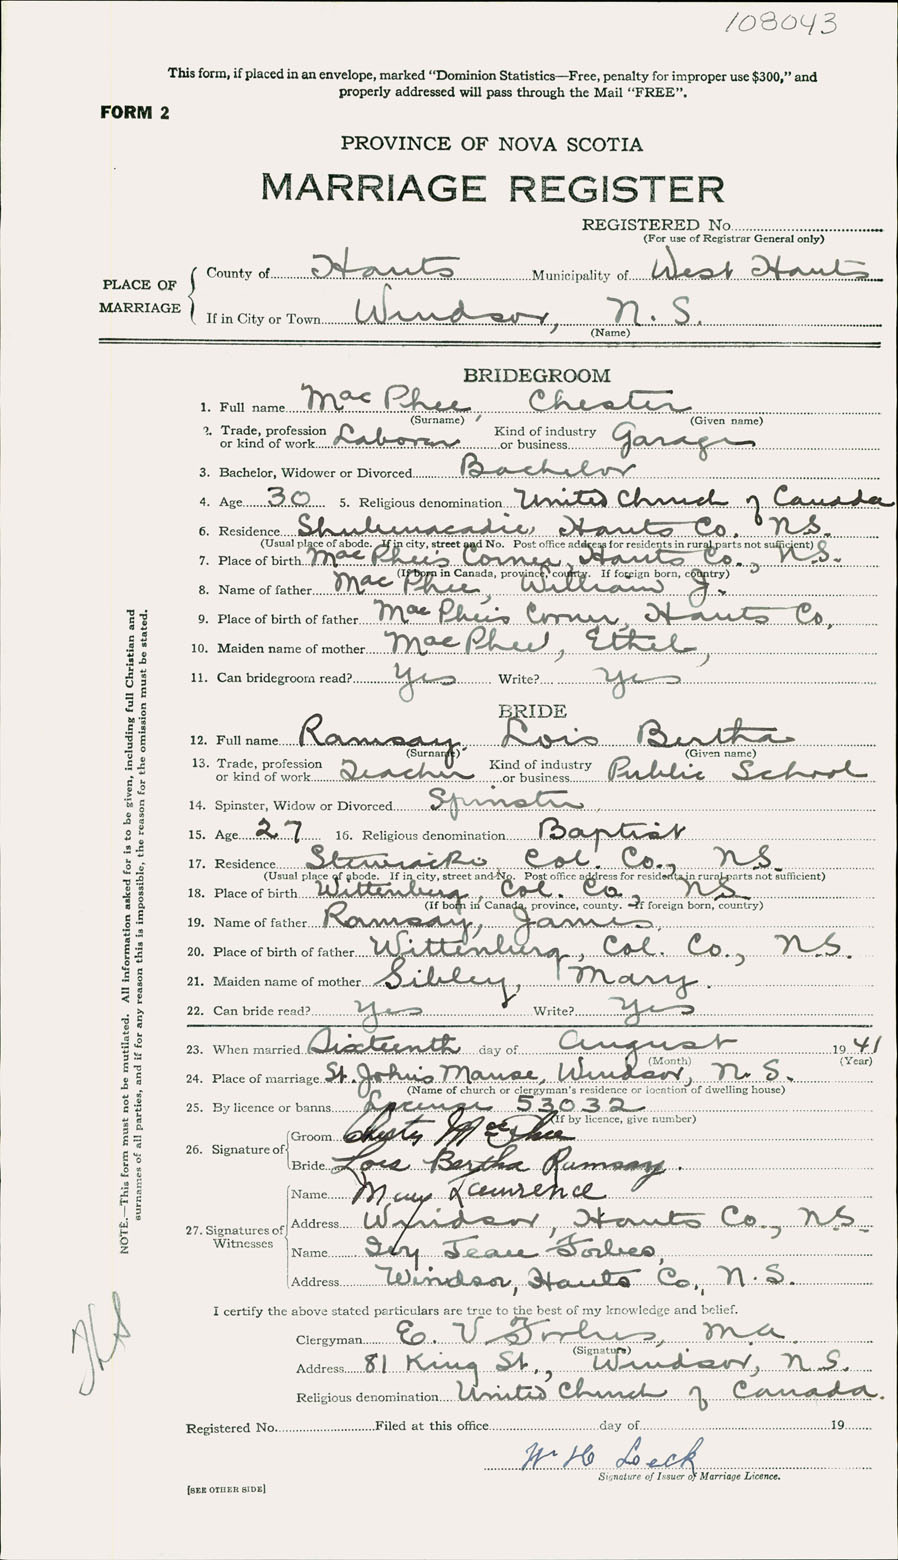 108043
This form, if placed in an envelope, marked "Dominion Statistics—Free, penalty for improper use $300," and
properly addressed will pass through the Mail "FREE".
FORM 2
PROVINCE OF NOVA SCOTIA
MARRIAGE REGISTER
REGISTERED No.
(For use of Registrar General only)
PLACE OF MARRIAGE
County of Hants Municipality of West Hants
If in City or Town Windsor, N. S.
(Name)
BRIDEGROOM
1. Full name MacPhee, Chester
(Surname) (Given name)
2. Trade, profession or kind of work Laborer Kind of industry or business Garage
3. Bachelor, Widower or Divorced Bachelor
4. Age 30 5. Religious denomination United Church of Canada
6. Residence Shubenacadie, Hants Co., N.S.
(Usual place of abode. If in city, street and No. Post office address for residents in rural parts not sufficient)
7. Place of birth MacPhee's Corner, Hants Co., N.S.
(If born in Canada, province, county. If foreign born, country)
8. Name of father MacPhee, William J.
9. Place of birth of father MacPhee's Corner, Hants Co.
10. Maiden name of mother MacPhee, Ethel
11. Can bridegroom read? Yes Write? Yes
BRIDE
12. Full name Ramsay, Lois Bertha
(Surname) (Given name)
13. Trade, profession or kind of work Teacher Kind of industry or business Public School
14. Spinster, Widow or Divorced Spinster
15. Age 27 16. Religious denomination Baptist
17. Residence Stewiacke, Col. Co., N.S.
(Usual place of abode. If in city, street and No. Post office address for residents in rural parts not sufficient)
18. Place of birth Wittenburg, Col. Co., N.S.
(If born in Canada, province, county. If foreign born, country)
19. Name of father Ramsay, James
20. Place of birth of father Wittenburg, Col. Co., N.S.
21. Maiden name of mother Sibley, Mary
22. Can bride read? Yes Write? Yes
23. When married Sixteenth day of August 1941
(Month) (Year)
24. Place of marriage St. John's Manse, Windsor, N. S.
(Name of church or clergyman's residence or location of dwelling house)
25. By licence or banns License 53032
(If by licence, give number)
26. Signature of
Groom Chester MacPhee
Bride Lois Bertha Ramsay.
27. Signatures of Witnesses
Name Mary Lawrence
Address Windsor, Hants Co., N.S.
Name Ivy Jean Forbes,
Address Windsor, Hants Co., N.S.
I certify the above stated particulars are true to the best of my knowledge and belief.
Clergyman E. V. Forbes, M.A.
(Signature)
Address 81 King St., Windsor, N.S.
Religious denomination United Church of Canada.
Registered No. Filed at this office day of 19
W H Loeck
Signature of Issuer of Marriage Licence.
[SEE OTHER SIDE]
NOTE.—This form must not be mutilated. All information asked for is to be given, including full Christian and
surnames of all parties, and if for any reason this is impossible, the reason for the omission must be stated.